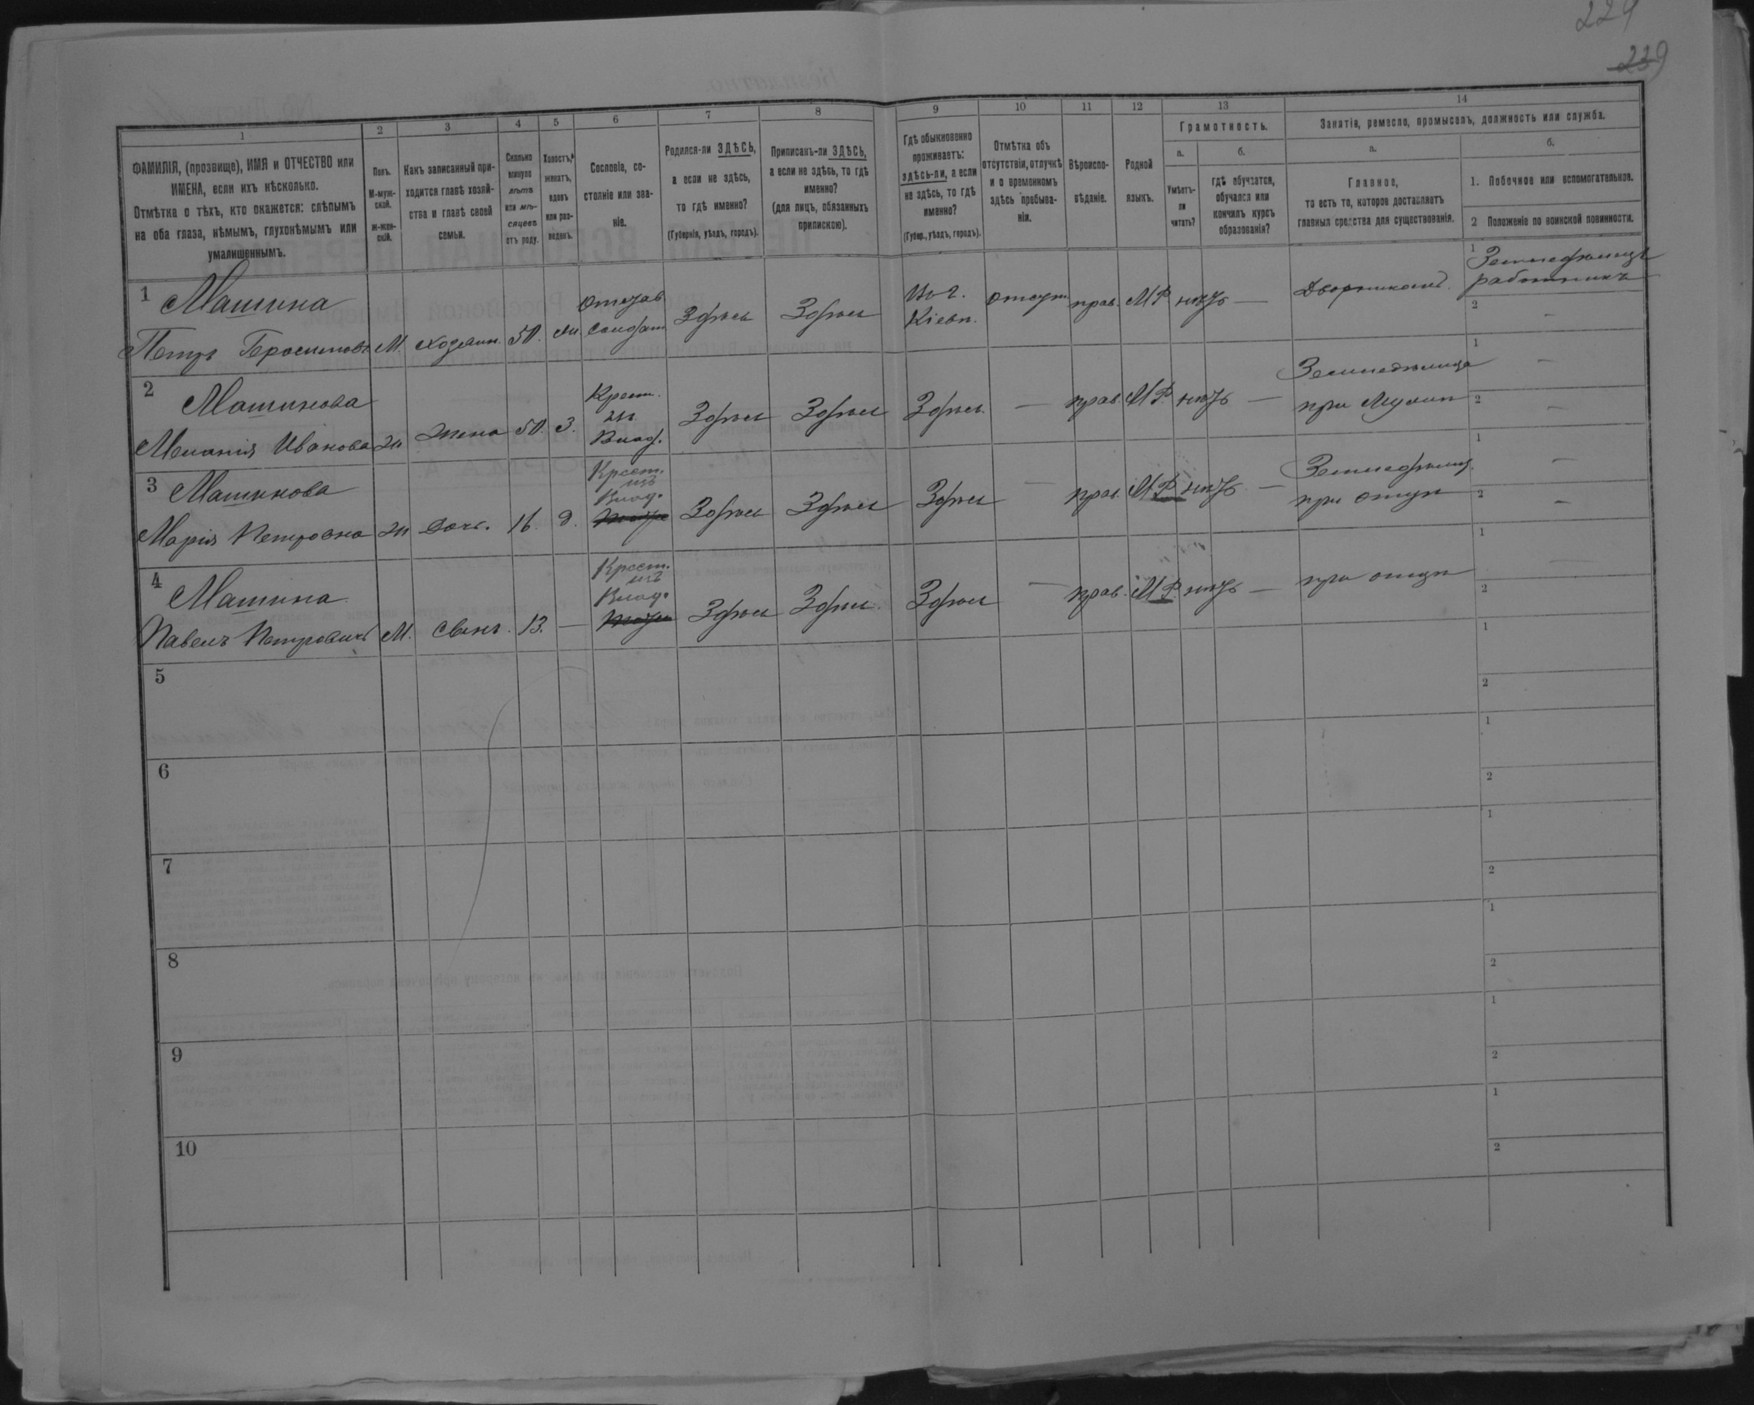 224
239
1
2
3
4
5
6
7
8
9
10
11
12
13
14
ФАМИЛІЯ, (прозвище), ИМЯ и ОТЧЕСТВО или
ИМЕНА, если ихъ нѣсколько.
Отмѣтка о тѣхъ, кто окажется: слѣпымъ
на оба глаза, нѣмымъ, глухонѣмымъ или
умалишеннымъ.
Полъ.
М-муж-
ской.
Ж-жен-
скій.
Какъ записанный при-
ходится главѣ хозяй-
ства и главѣ своей
семьи.
Сколько
минуло
лѣтъ
или мѣ-
сяцевъ
отъ роду.
Холостъ,
женатъ,
вдовъ
или раз-
веденъ.
Сословіе, со-
стояніе или зва-
ніе.
Родился-ли ЗДѢСЬ,
а если не здѣсь,
то гдѣ именно?
(Губернія, уѣздъ, городъ).
Приписанъ-ли ЗДѢСЬ,
а если не здѣсь, то гдѣ
именно?
(для лицъ, обязанныхъ
припискою).
Гдѣ обыкновенно
проживаетъ:
здѣсь-ли, а если
не здѣсь, то гдѣ
именно?
(Губер., уѣздъ, городъ).
Отмѣтка объ
отсутствіи, отлучкѣ
и о временномъ
здѣсь пребыва-
ніи.
Вѣроиспо-
вѣданіе.
Родной
языкъ.
Грамотность.
а.
Умѣетъ-
ли
читать?
б.
гдѣ обучается,
обучался или
кончилъ курсъ
образованія?
Занятіе, ремесло, промыселъ, должность или служба.
а.
Главное,
то есть то, которое доставляетъ
главныя средства для существованія.
б.
1. Побочное или вспомогательное.
2 Положеніе по воинской повинности.
1 Машина
Петръ Герасимовъ М. хозяин. 50. ж. отстав. солдат Здѣсь Здѣсь въ г. Кіевѣ. отсут. прав. М.Р. нѣтъ — Дворникомъ.
1 Земледѣлецъ работникъ
2 —
2 Машинова
Меланія Иванова ж жена 50. з. Крест. из Влад. Здѣсь Здѣсь Здѣсь — прав. М.Р. нѣтъ — Земледѣлица при мужѣ
1 —
2 —
3 Машинова
Марія Петровна ж дочь. 16. д. Крест. изъ Влад. Здѣсь Здѣсь Здѣсь — прав. М.Р. нѣтъ — Земледѣлиц. при отцѣ
1 —
2 —
4 Машина
Павелъ Петровичъ М. сынъ. 13. — Крест. изъ Влад. Здѣсь Здѣсь Здѣсь — прав. М.Р. нѣтъ — при отцѣ
1 —
2
5
1
2
6
1
2
7
1
2
8
1
2
9
1
2
10
1
2